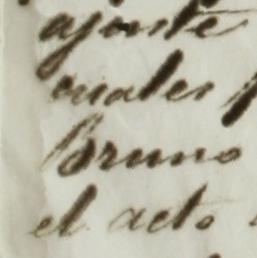 ajuste
cuales
Bruno
el acto